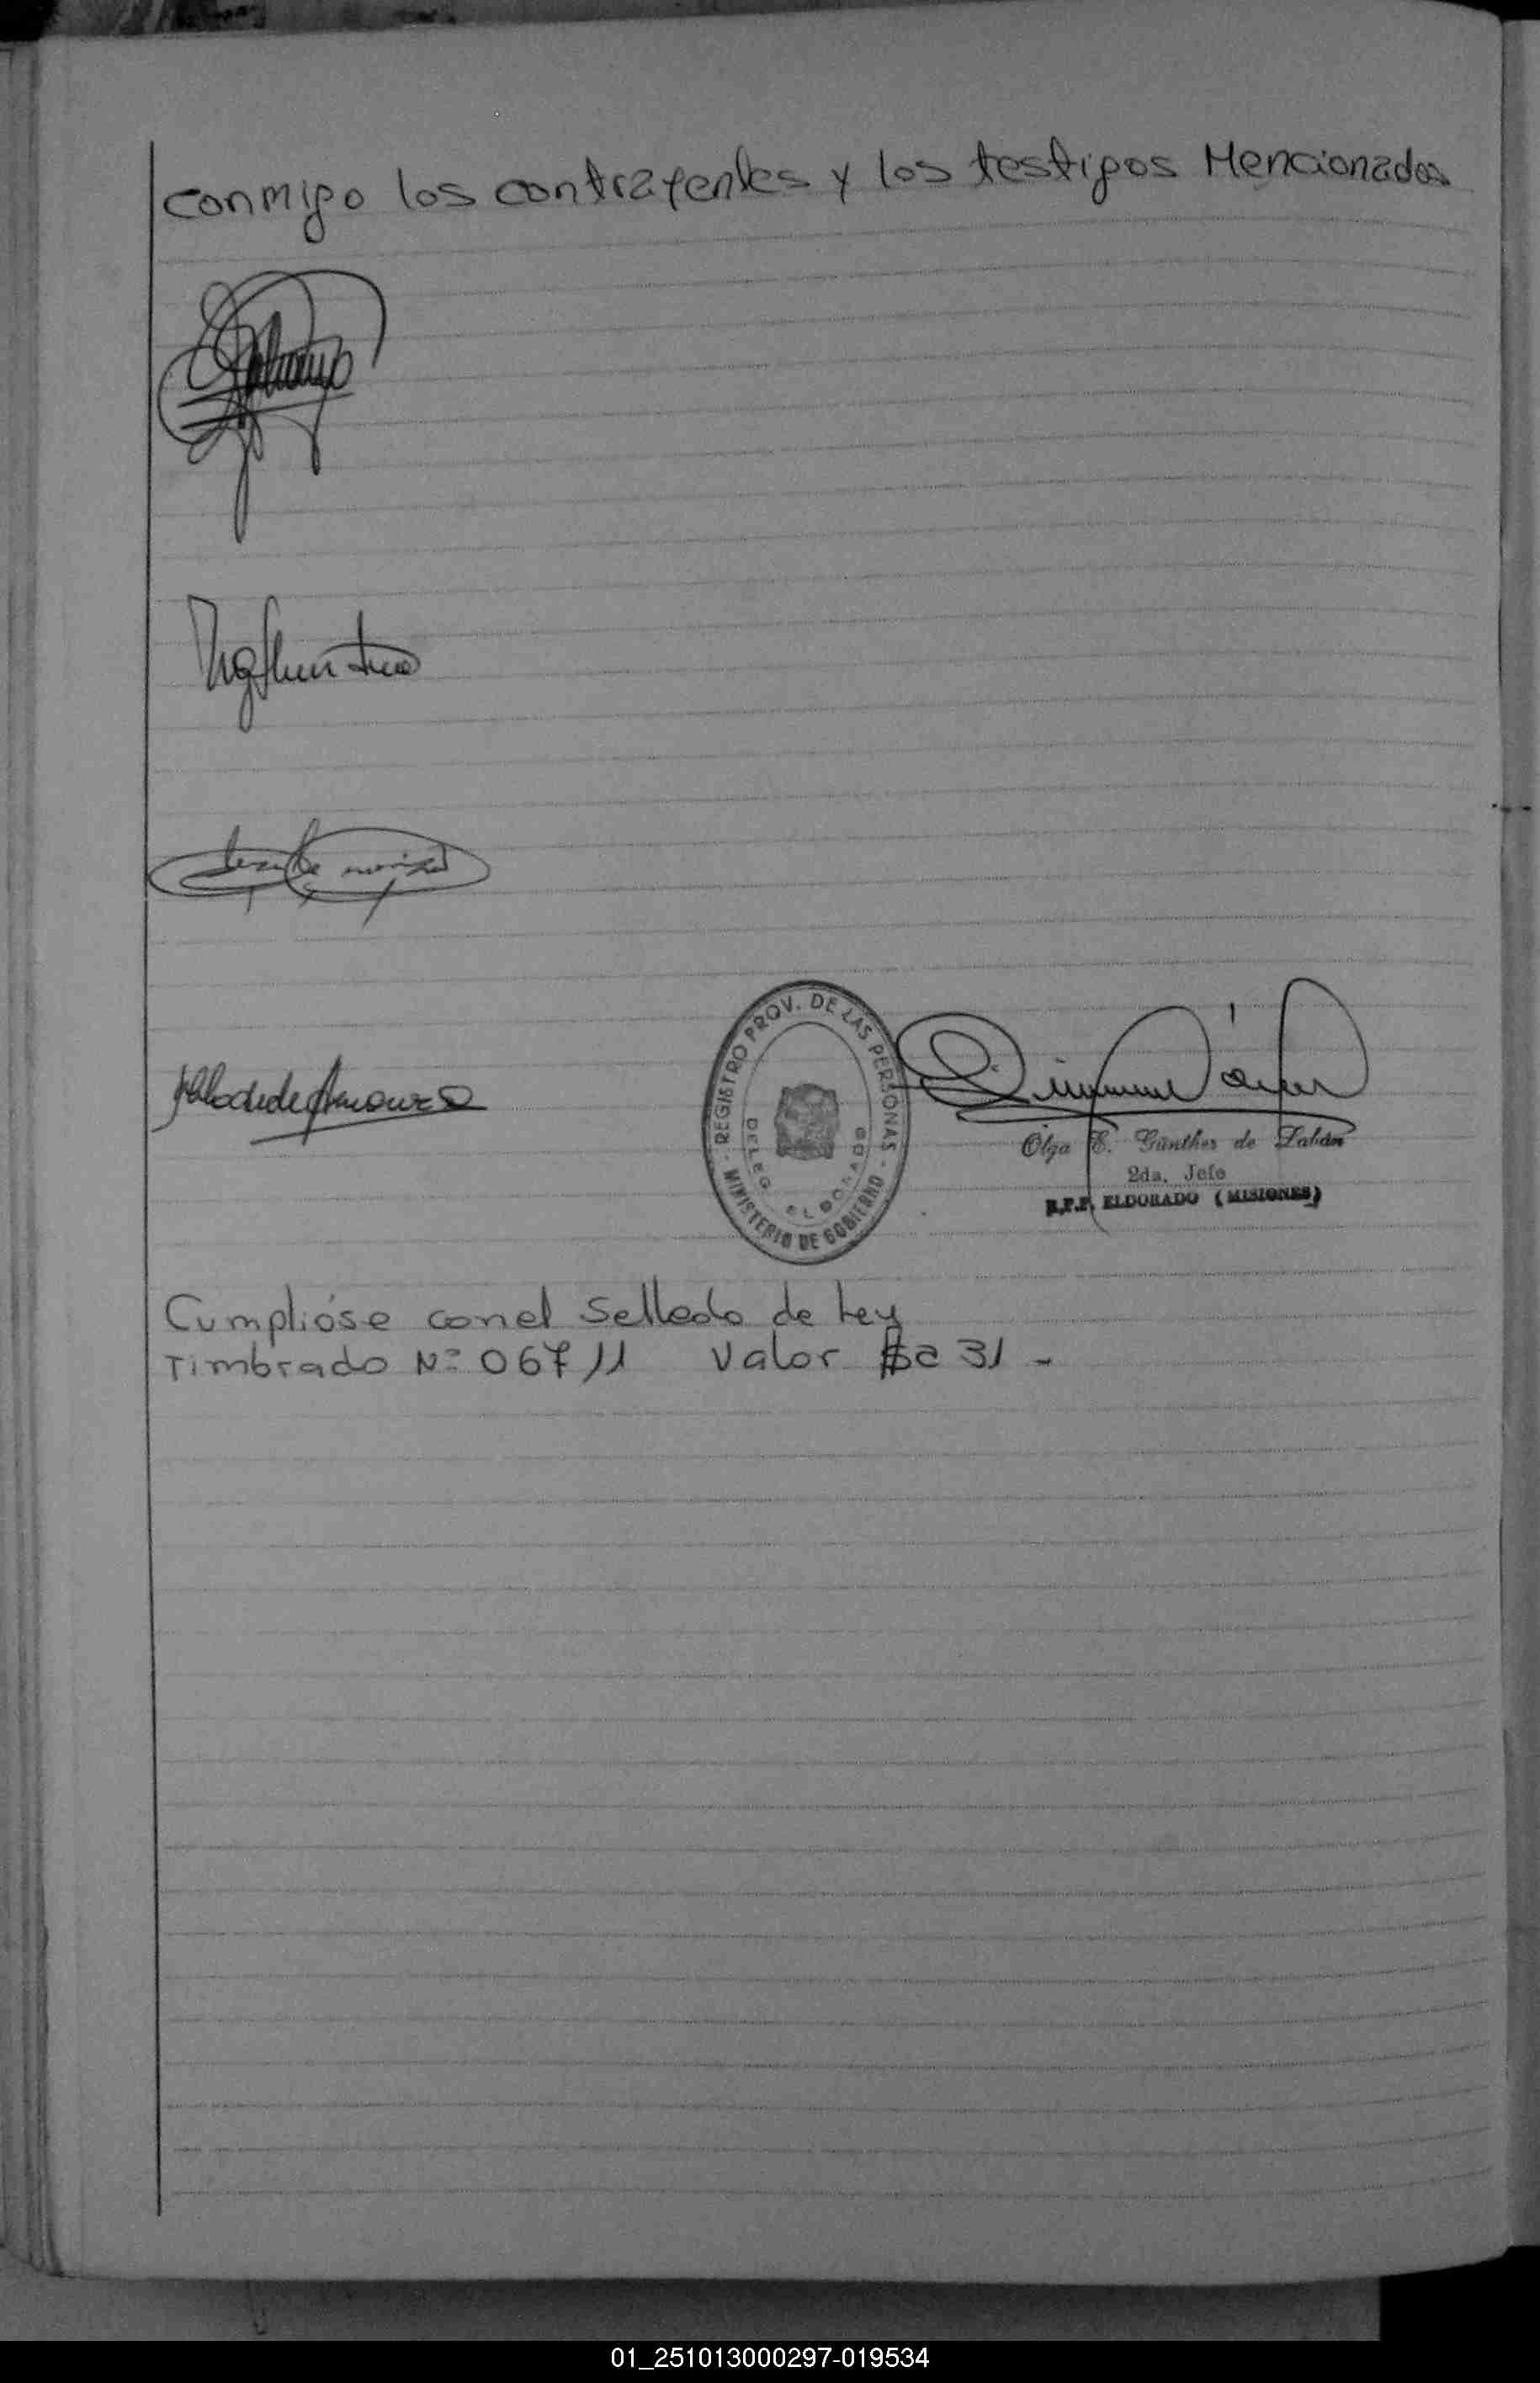 conmigo los contrayentes y los testigos Mencionados
REGISTRO PROV. DE LAS PERSONAS
- MINISTERIO DE GOBIERNO -
DELEG. ELDORADO
Olga E. Günther de Labán
2da. Jefe
R.P.P. ELDORADO (MISIONES)
Cumplióse con el Sellado de Ley
Timbrado Nº 06711 Valor $a 31 -
01_251013000297-019534